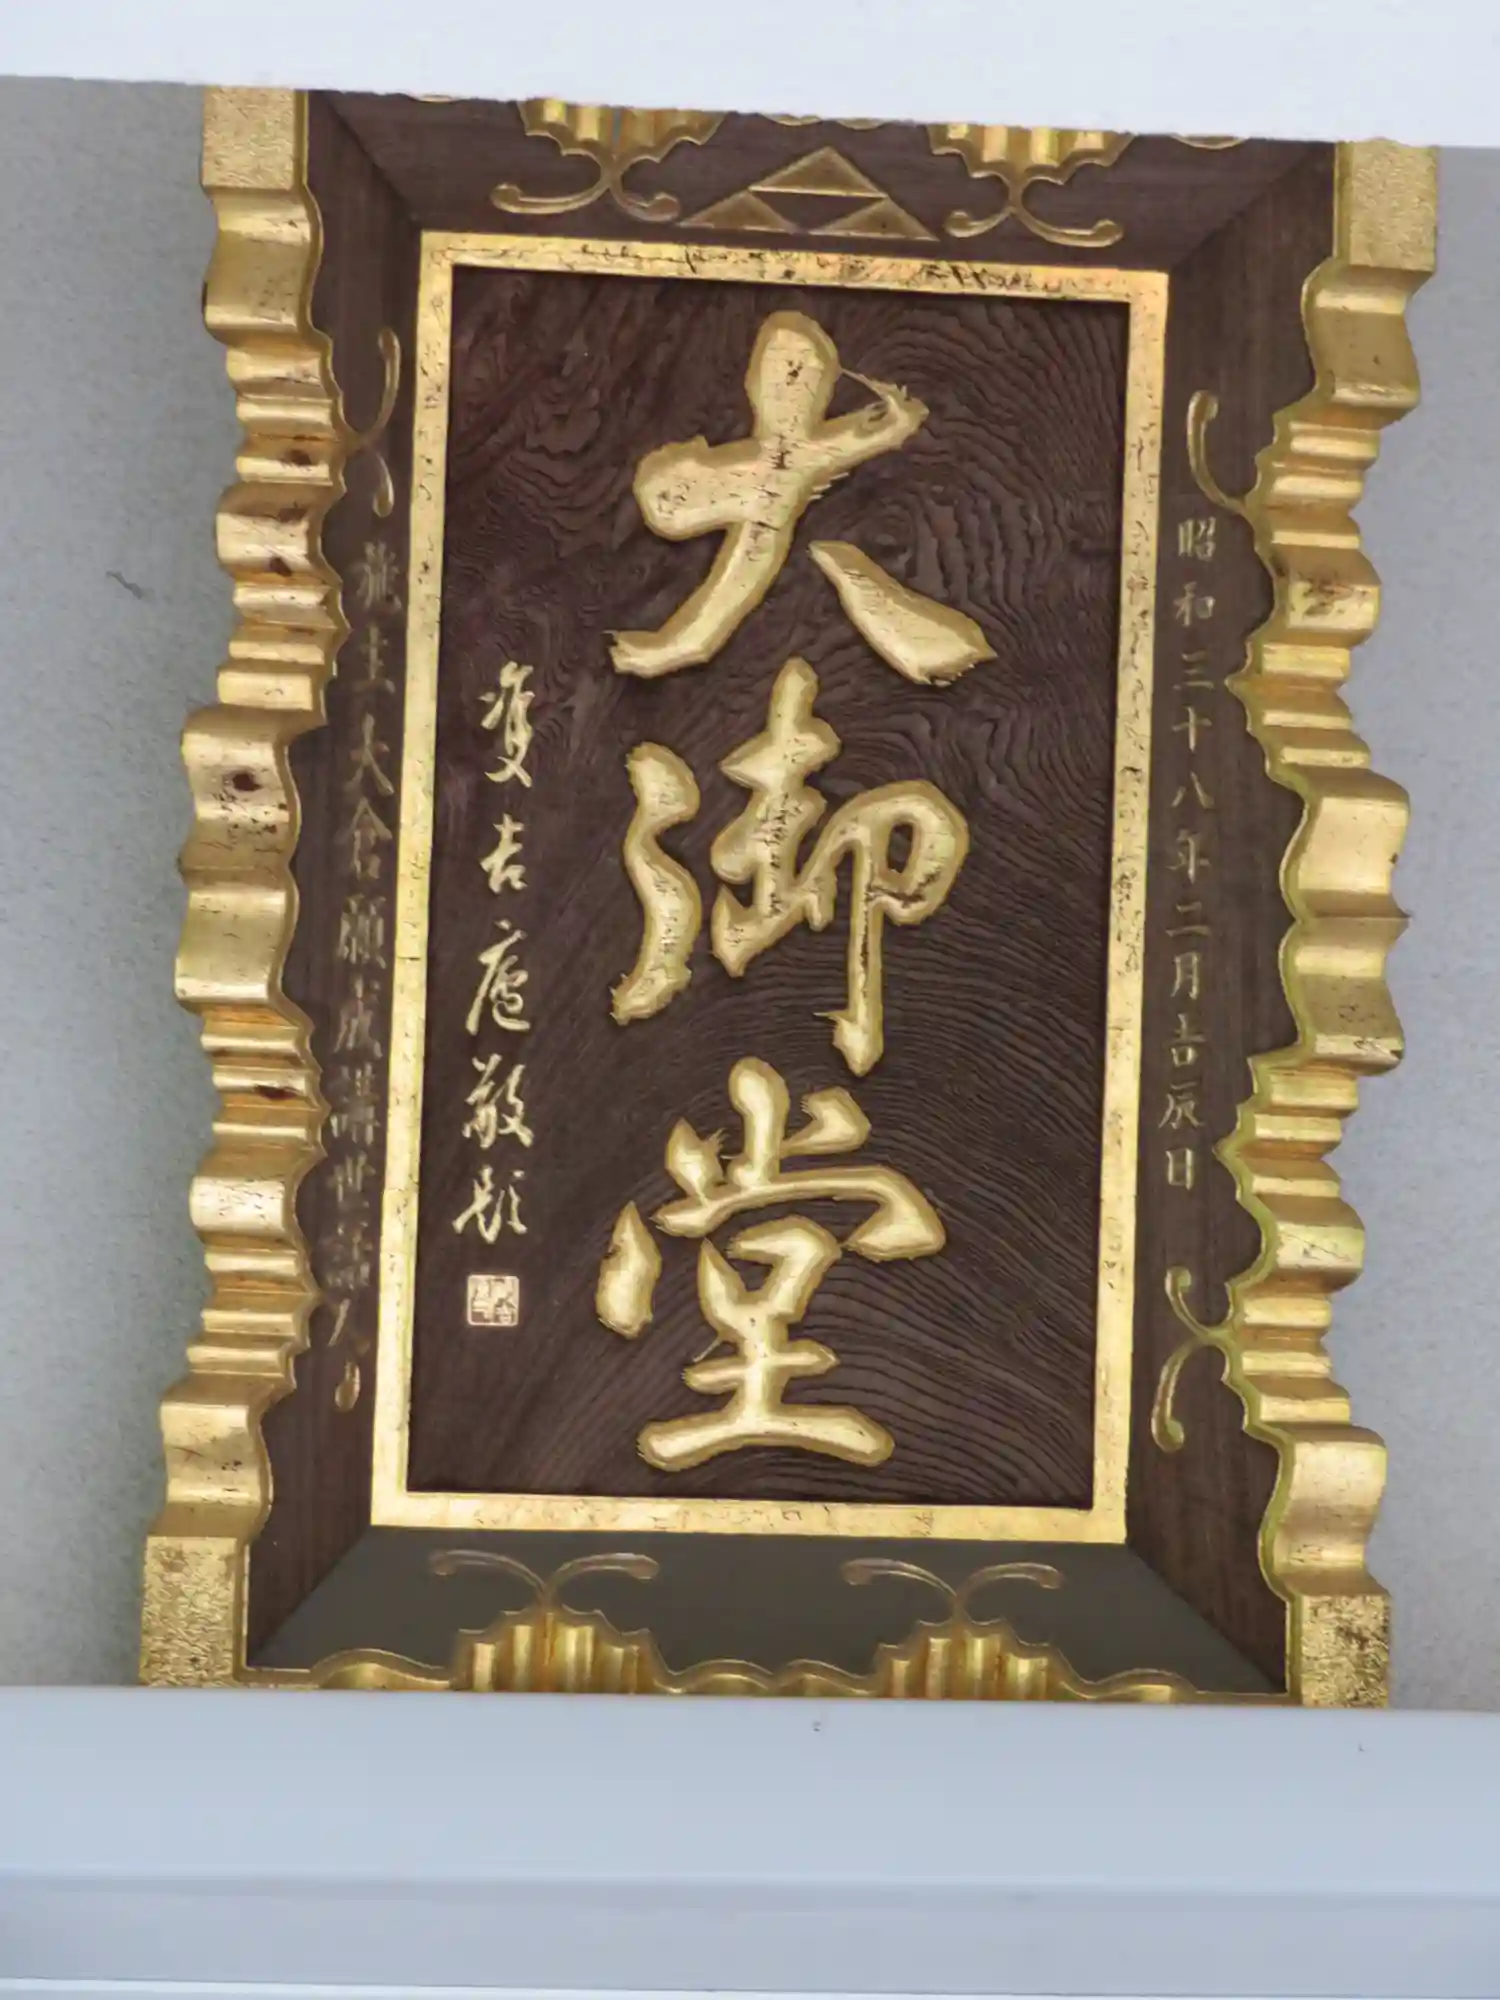 昭和三十八年二月吉辰日
大御堂
雙吉庵敬題
施主大倉願成講世話人